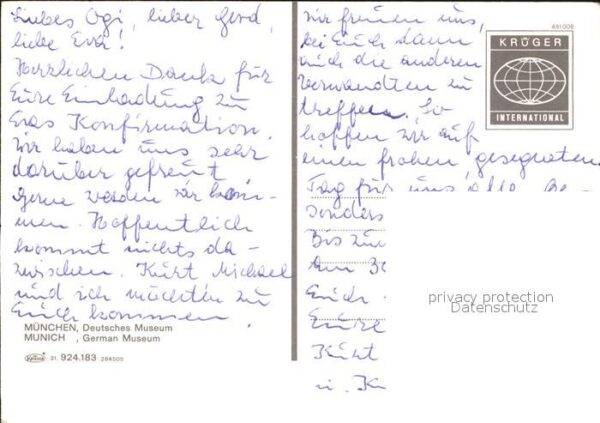 Liebes Ogi, lieber Gerd,
liebe Eva!
Herzlichen Dank für
Eure Einladung zu
Evas Konfirmation.
Wir haben uns sehr
darüber gefreut.
Gerne werden wir kom-
men. Hoffentlich
kommt nichts da-
zwischen. Kurt, Michael
und ich möchten zu
Euch kommen.
MÜNCHEN, Deutsches Museum
MUNICH, German Museum
31 924.183 284505
wir freuen uns,
bei Euch dann
auch die anderen
Verwandten zu
treffen. So
hoffen wir auf
einen frohen, gesegneten
Tag für uns alle, be-
sonders
Bis zum
am 30
Euch
Eure
Kurt
u.
491006
KRÜGER
INTERNATIONAL
privacy protection
Datenschutz